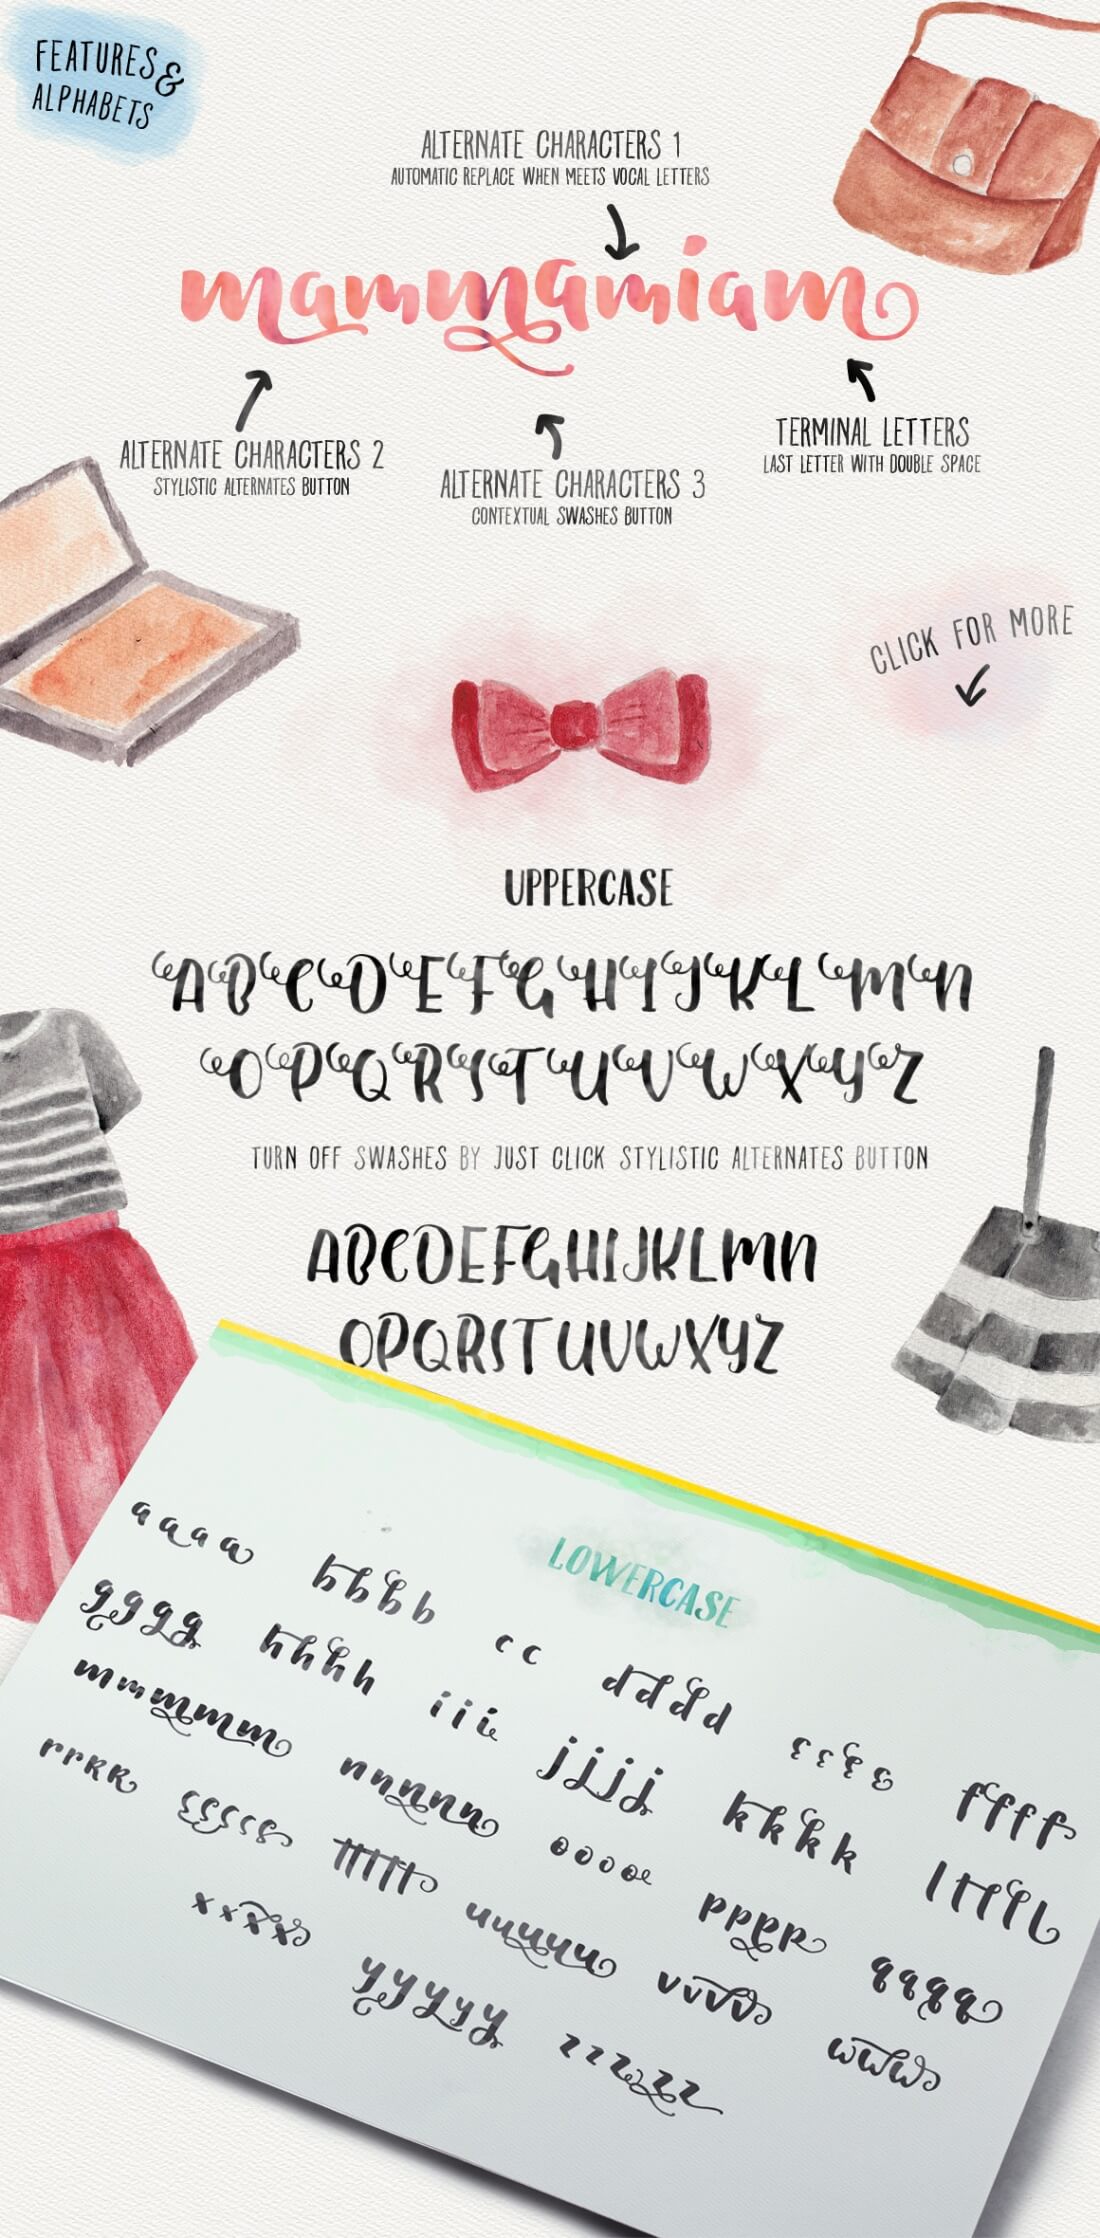 FEATURES &
ALPHABETS
ALTERNATE CHARACTERS 1
AUTOMATIC REPLACE WHEN MEETS VOCAL LETTERS
mammamiam
ALTERNATE CHARACTERS 2
STYLISTIC ALTERNATES BUTTON
ALTERNATE CHARACTERS 3
CONTEXTUAL SWASHES BUTTON
TERMINAL LETTERS
LAST LETTER WITH DOUBLE SPACE
CLICK FOR MORE
UPPERCASE
ABCDEFGHIJKLMN
OPQRSTUVWXYZ
TURN OFF SWASHES BY JUST CLICK STYLISTIC ALTERNATES BUTTON
ABCDEFGHIJKLMN
OPQRSTUVWXYZ
LOWERCASE
aaaa bbbb cc dddd εεεε ffff
gggg hhhh iii jjjj kkkk lllll
mmmmm nnnnn oooo pppp qqqq
rrRR sssss ttttt uuuuu vvvv wwww
xxxx yyyyy zzzzz